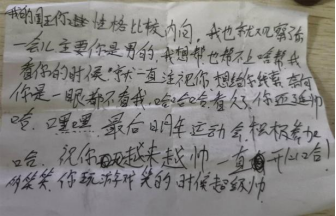 我的国王你这性格比较内向,我也就观察了你
一会儿主要你是男的,我想帮也帮不上啥帮我
看你的时候就一直注视你,想给你线索,奈何
你是一眼都不看我,哈哈哈,看久了,你还延帅
哈,嘿嘿,最后周年运动会积极参加
哈,祝你越来越帅一直开心哈
你笑笑,你玩游戏笑的时候超级帅